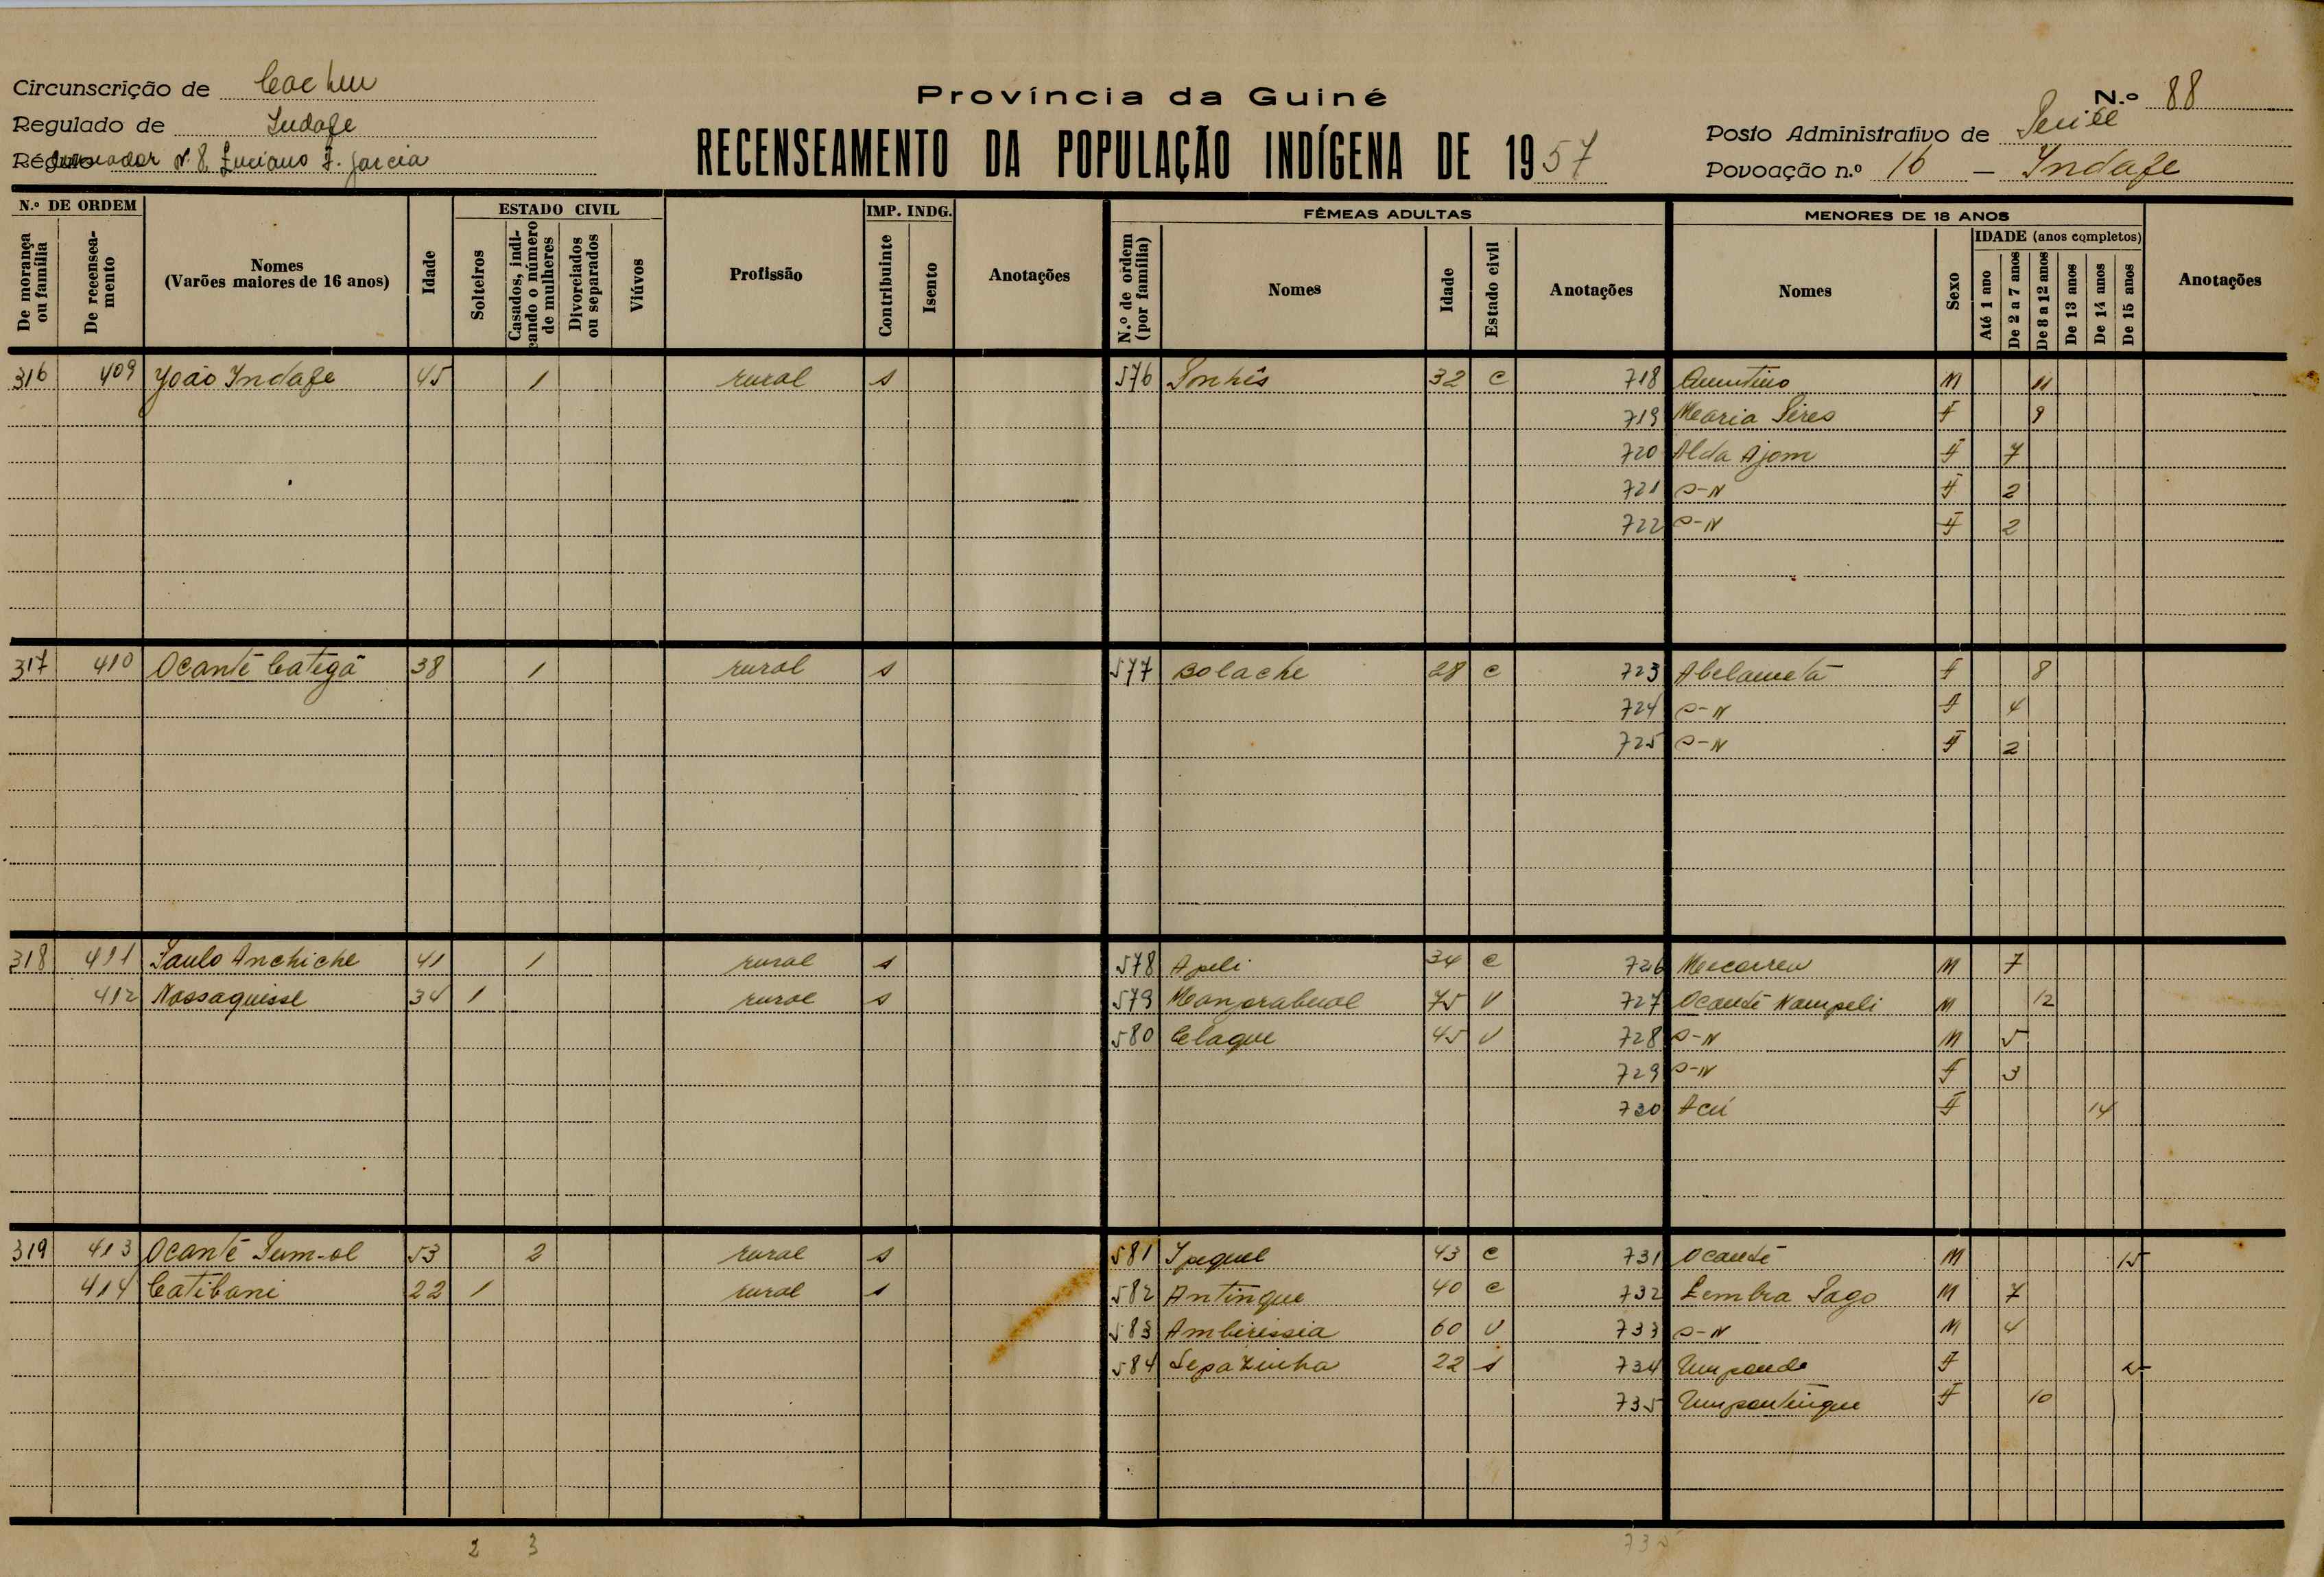 Circunscrição de Cacheu
Província da Guiné
N.º 88
Regulado de Indafe
RECENSEAMENTO DA POPULAÇÃO INDÍGENA DE 1957
Posto Administrativo de
Régulo N.º 8 Luciano F. Garcia
Povoação n.º 16 — Indafe
N.º DE ORDEM
ESTADO CIVIL
IMP. INDG.
FÊMEAS ADULTAS
MENORES DE 18 ANOS
IDADE (anos completos)
De morança ou família
De recenseamento
Nomes
(Varões maiores de 16 anos)
Idade
Solteiros
Casados, indicando o número de mulheres
Divorciados ou separados
Viúvos
Profissão
Contribuinte
Isento
Anotações
N.º de ordem (por família)
Nomes
Idade
Estado civil
Anotações
Nomes
Sexo
Até 1 ano
De 2 a 7 anos
De 8 a 12 anos
De 13 anos
De 14 anos
De 15 anos
Anotações
316 409 João Indafe 45 1 rural s 576 32 c 718 M 11
719 Maria Pires F 9
720 Alda Ajom F 7
721 S-N F 2
722 S-N F 2
317 410 Ocanté Categã 38 1 rural s 577 Bolache 28 c 723 Abelametá F 8
724 S-N F 4
725 S-N F 2
318 411 Paulo Anchiche 41 1 rural s 578 Apeli 34 c 726 M 7
412 Nassaquisse 34 1 rural s 579 75 V 727 Ocanté Nampeli M 12
580 Celaque 45 V 728 S-N M 5
729 S-N F 3
730 Acú F 14
319 413 Ocanté Pum-ol 53 2 rural s 581 Ipequel 43 c 731 Ocanté M 15
414 Catibani 22 1 rural s 582 Antinque 40 c 732 Lembra Pago M 7
583 Ambirissia 60 V 733 S-N M 4
584 22 s 734 F
735 F 10
2 3 735